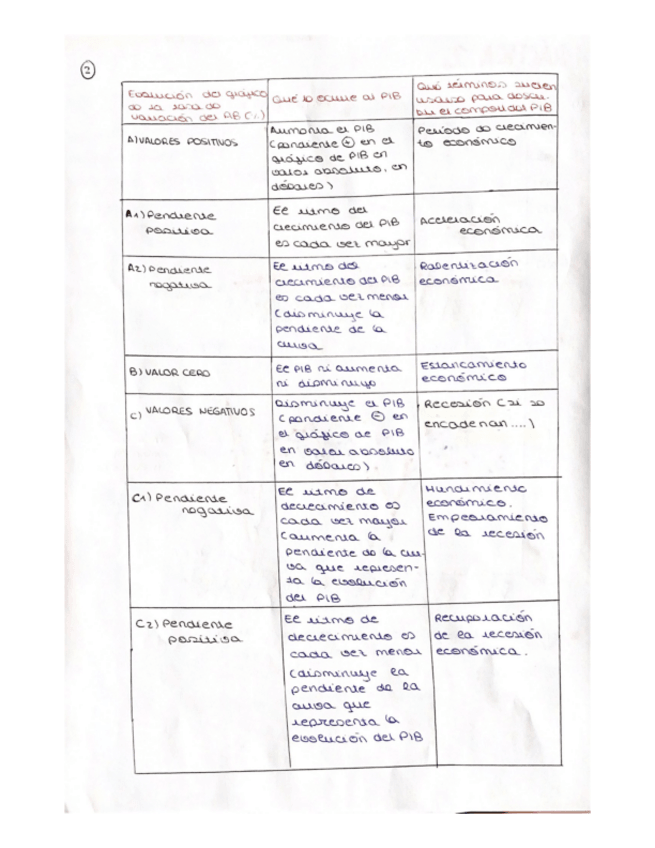 2
Evolución del gráfico
de la tasa de
variación del PIB (%)
Qué le ocurre al PIB
Qué términos suelen
usarse para descri-
bir el comport. del PIB
A) VALORES POSITIVOS
Aumenta el PIB
(pendiente ⊕ en el
gráfico de PIB en
valor absoluto, en
dólares)
Período de crecimien-
to económico
A1) Pendiente
positiva
El ritmo del
crecimiento del PIB
es cada vez mayor
Aceleración
económica
A2) Pendiente
negativa
El ritmo del
crecimiento del PIB
es cada vez menor
(disminuye la
pendiente de la
curva
Ralentización
económica
B) VALOR CERO
El PIB ni aumenta
ni disminuye
Estancamiento
económico
C) VALORES NEGATIVOS
Disminuye el PIB
(pendiente ⊖ en
el gráfico de PIB
en valor absoluto
en dólares).
Recesión (si se
encadenan....)
C1) Pendiente
negativa
El ritmo de
decrecimiento es
cada vez mayor
(aumenta la
pendiente de la cur-
va que represen-
ta la evolución
del PIB
Hundimiento
económico.
Empeoramiento
de la recesión
C2) Pendiente
positiva
El ritmo de
decrecimiento es
cada vez menor
(disminuye la
pendiente de la
curva que
representa la
evolución del PIB
Recuperación
de la recesión
económica.